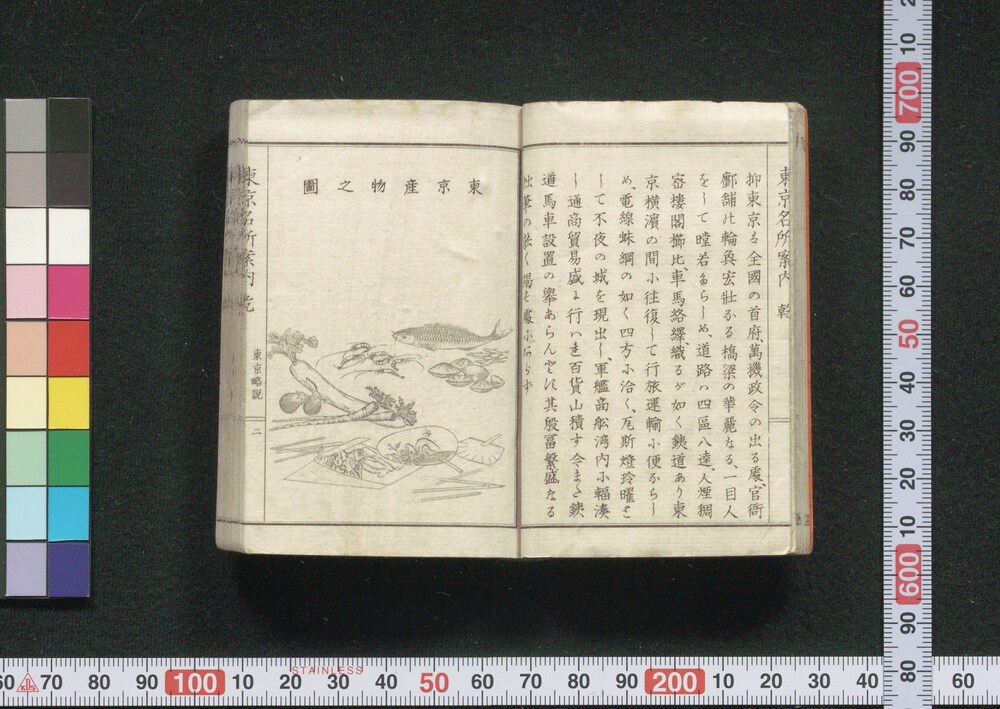 東京名所案内 乾
抑東京る全國の首府、萬機政令の出る處、官衙
鄽舗比輪奐宏壮なる橋梁の華麗なる、一目人
をして瞠若さらしめ、道路ハ四區八達、人煙稠
密樓閣櫛比、車馬絡繹、織るが如く鉄道あり東
京横濱の間小往復して行旅運輸小便からし
め、電線蛛網の如く四方小洽く、瓦斯燈玲曜と
して不夜の城を現出し、軍艦商舩湾内小輻湊
し通商貿易盛よ行ハ連百貨山積す今また鉄
道馬車設置の擧あらんとす其殷冨繁盛なる
筆の
東京産物之圖
東京名所案内 乾
東京略説
二
60 70 80 90 100 10 20 30 40 50 60 70 80 90 200 10 20 30 40 60
STAINLESS
10 700 90 80 70 60 50 40 30 20 10 600 90 80